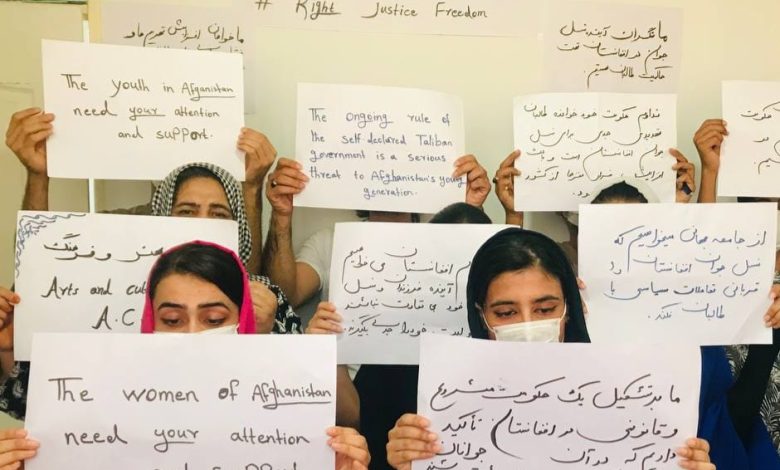 # Right Justice Freedom
ما خواهان افزایش تحریم های
ما نگران آینده نسل
جوان در افغانستان تحت
حاکمیت طالبان هستیم.
The youth in Afganistan
need your attention
and support.
The ongoing rule of
the self-declared Taliban
government is a serious
threat to Afghanistan's young
generation.
تداوم حکومت خود خوانده طالبان
تهدیدی جدی برای نسل
جوان افغانستان است و باعث
از کشور
حکومت
هنر و فرهنگ
Arts and cu
A.C
افغانستان می خواهیم
آینده فرزندان و نسل
خود بی تفاوت نباشند
خود را جدی بگیرند.
از جامعه جهانی میخواهیم که
نسل جوان افغانستان را
قربانی تعاملات سیاسی با
طالبان نکند.
The women of Afghanistan
need your attention
ما بر تشکیل یک حکومت مشروع
و قانونی در افغانستان تأکید
داریم که در آن
جوانان